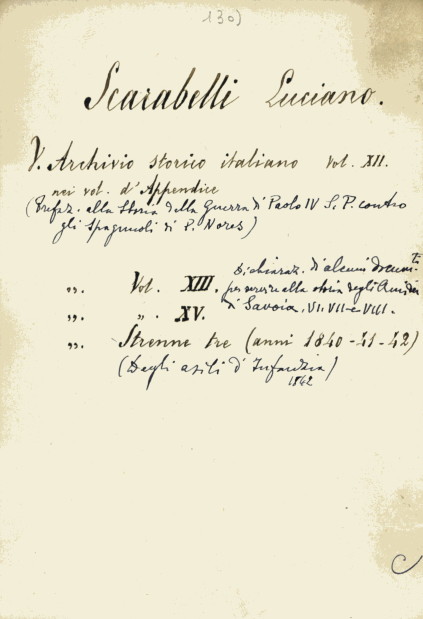 130)
Scarabelli Luciano.
V. Archivio storico italiano Vol. XII.
nei vol. d'Appendice
(Prefaz. alla Storia della Guerra di Paolo IV S. P. contro
gli Spagnuoli di P. Nores)
„. Vol. XIII. Dichiaraz. di alcuni docum.ti
per servire alla storia degli
„. „. XV. di Savoia, VI. VII e VIII.
„. Strenne tre (anni 1840-41-42)
(Degli asili d'Infanzia)
1842